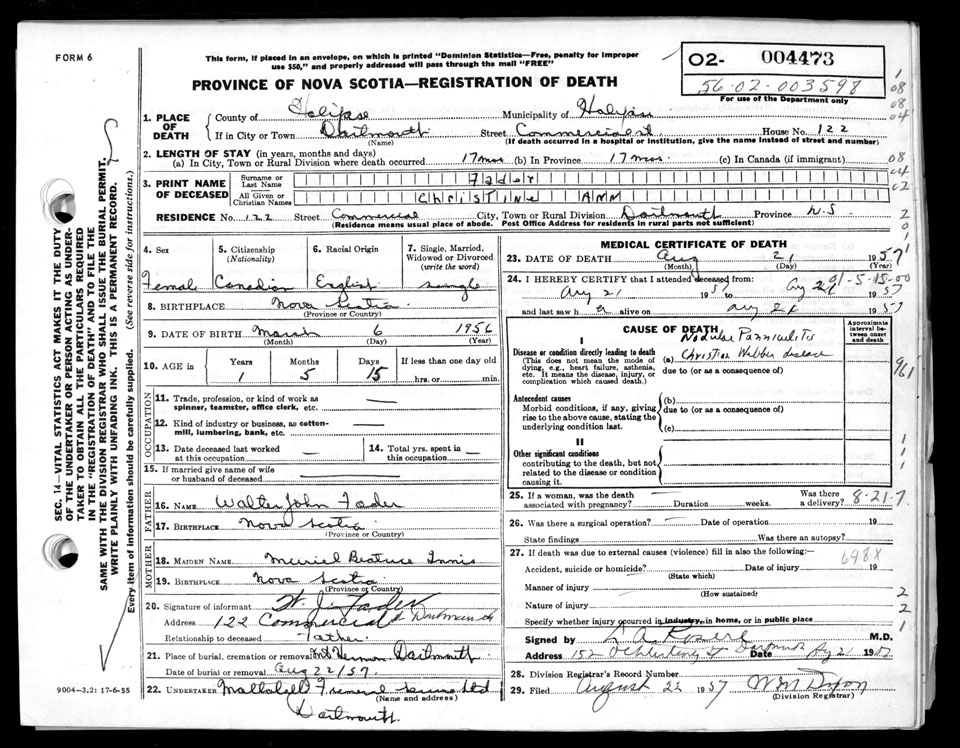 FORM 6
This form, if placed in an envelope, on which is printed "Dominion Statistics—Free, penalty for improper
use $50," and properly addressed will pass through the mail "FREE"
PROVINCE OF NOVA SCOTIA—REGISTRATION OF DEATH
O2- 004473
56-02-003598
For use of the Department only
1. PLACE OF DEATH
County of Halifax Municipality of Halifax
If in City or Town Dartmouth Street Commercial St House No. 122
(Name) (If death occurred in a hospital or institution, give the name instead of street and number)
2. LENGTH OF STAY (in years, months and days)
(a) In City, Town or Rural Division where death occurred 17 mos (b) In Province 17 mos. (c) In Canada (if immigrant)
3. PRINT NAME OF DECEASED
Surname or Last Name Fader
All Given or Christian Names Christine Ann
RESIDENCE No. 122 Street Commercial City, Town or Rural Division Dartmouth Province N.S.
(Residence means usual place of abode. Post Office Address for residents in rural parts not sufficient)
4. Sex 5. Citizenship (Nationality) 6. Racial Origin 7. Single, Married, Widowed or Divorced (write the word)
Female Canadian English single
8. BIRTHPLACE Nova Scotia
(Province or Country)
9. DATE OF BIRTH March 6 1956
(Month) (Day) (Year)
10. AGE in Years Months Days If less than one day old
1 5 15 hrs. or min.
OCCUPATION
11. Trade, profession, or kind of work as spinner, teamster, office clerk, etc. —
12. Kind of industry or business, as cotton-mill, lumbering, bank, etc. —
13. Date deceased last worked at this occupation — 14. Total yrs. spent in this occupation —
15. If married give name of wife or husband of deceased —
FATHER
16. NAME Walter John Fader
17. BIRTHPLACE Nova Scotia
(Province or Country)
MOTHER
18. MAIDEN NAME Muriel Beatrice Innis
19. BIRTHPLACE Nova Scotia
(Province or Country)
20. Signature of informant W. J. Fader
Address 122 Commercial St Dartmouth
Relationship to deceased Father.
21. Place of burial, cremation or removal Mt Hermon Dartmouth
Date of burial or removal Aug 22/57.
22. UNDERTAKER Funeral Ltd
(Name and address)
Dartmouth.
9004—3.2: 17-6-55
MEDICAL CERTIFICATE OF DEATH
23. DATE OF DEATH Aug 21 1957
(Month) (Day) (Year)
24. I HEREBY CERTIFY that I attended deceased from:
Aug 21 1957 to Aug 21 1957
and last saw h alive on Aug 21 1957
91-5-15-00
CAUSE OF DEATH
Approximate interval between onset and death
I
Disease or condition directly leading to death
(This does not mean the mode of dying, e.g., heart failure, asthenia, etc. It means the disease, injury, or complication which caused death.)
Nodular Panniculitis
(a) Christian Webber disease
due to (or as a consequence of)
Antecedent causes
Morbid conditions, if any, giving rise to the above cause, stating the underlying condition last.
(b)
due to (or as a consequence of)
(c)
II
Other significant conditions
contributing to the death, but not related to the disease or condition causing it.
25. If a woman, was the death associated with pregnancy? — Duration weeks. Was there a delivery? 8-21-7
26. Was there a surgical operation? — Date of operation 19
State findings Was there an autopsy?
27. If death was due to external causes (violence) fill in also the following:— 698X
Accident, suicide or homicide? Date of injury 19
(State which)
Manner of injury
(How sustained)
Nature of injury
Specify whether injury occurred in industry, in home, or in public place
Signed by M.D.
Address 152 St Date Aug 21 1957
28. Division Registrar's Record Number
29. Filed August 22 1957 W M Dixon
(Division Registrar)
SEC. 14—VITAL STATISTICS ACT MAKES IT THE DUTY
OF THE UNDERTAKER OR PERSON ACTING AS UNDER-
TAKER TO OBTAIN ALL THE PARTICULARS REQUIRED
IN THE "REGISTRATION OF DEATH" AND TO FILE THE
SAME WITH THE DIVISION REGISTRAR WHO SHALL ISSUE THE BURIAL PERMIT.
WRITE PLAINLY WITH UNFADING INK. THIS IS A PERMANENT RECORD.
Every item of information should be carefully supplied. (See reverse side for instructions.)
1
08
08
04
08
04
02
2
0
1
961
1
1
1
2
2
1